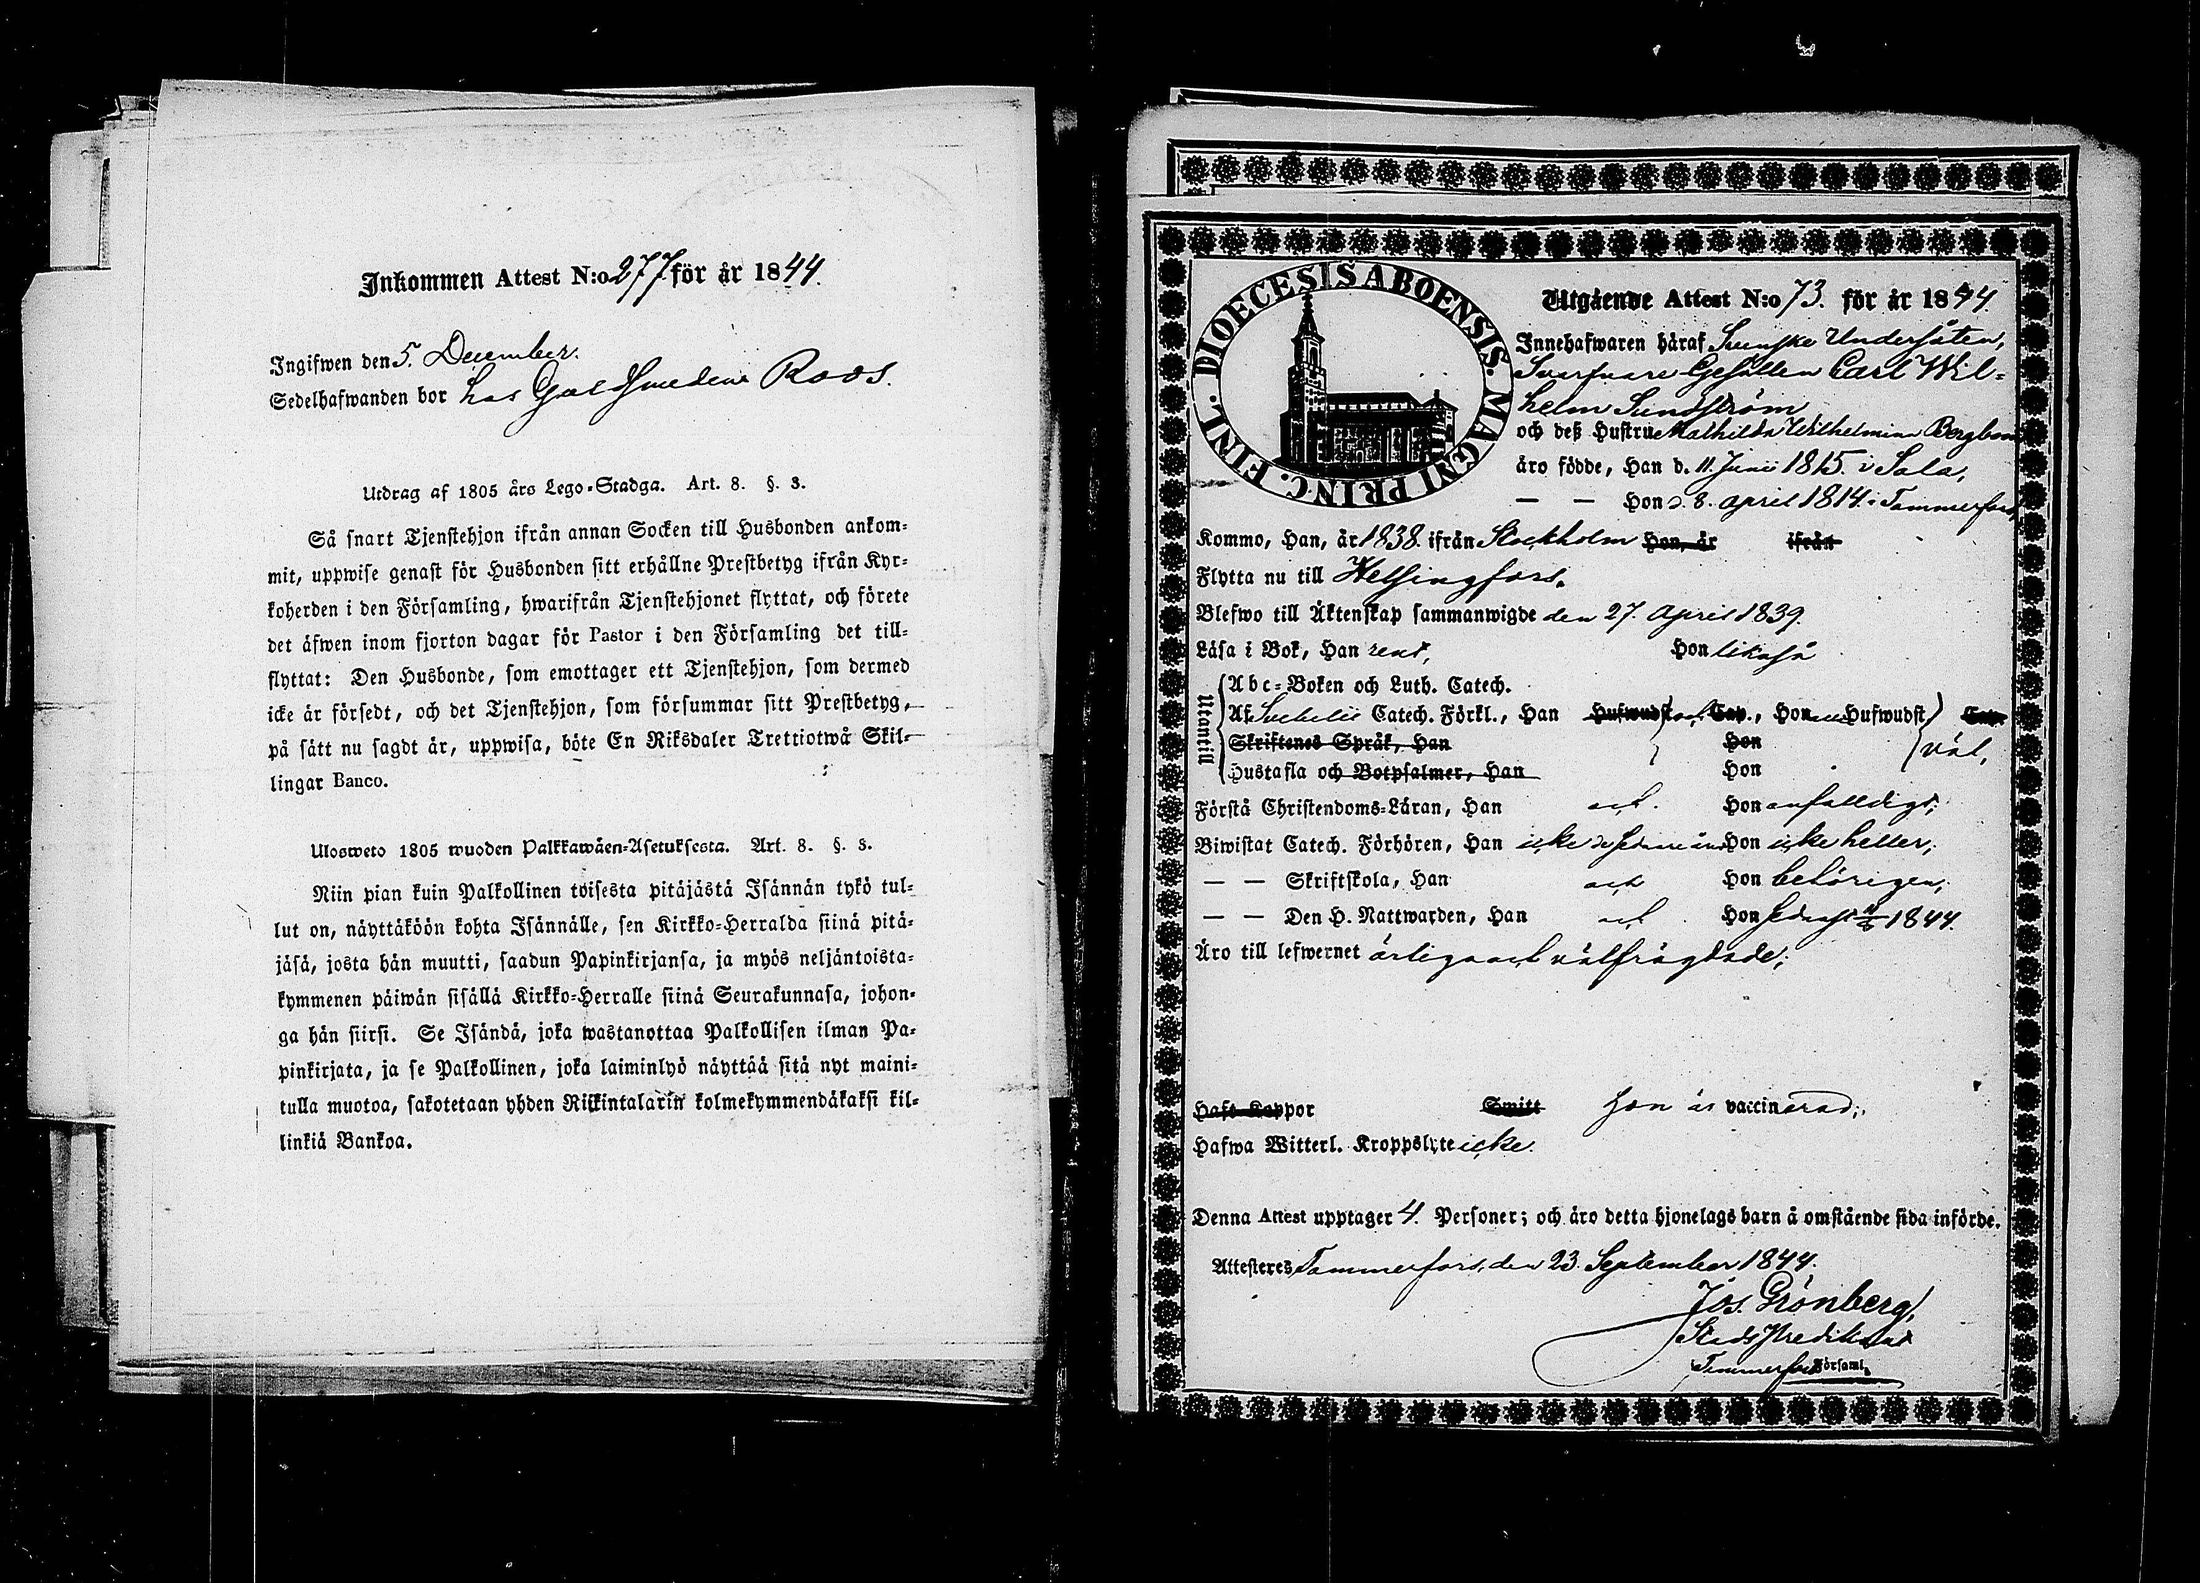 Inkommen Attest N:o 277 för år 1844.
Ingifwen den 5. December.
Sedelhafwanden bor hos Guldsmeden Roos.
Utdrag af 1805 års Lego-Stadga. Art. 8. §. 3.
Så snart Tjenstehjon ifrån annan Socken till Husbonden ankom-
mit, uppwise genast för Husbonden sitt erhållne Prestbetyg ifrån Kyr-
koherden i den Församling, hwarifrån Tjenstehjonet flyttat, och förete
det äfwen inom fjorton dagar för Pastor i den Församling det till-
flyttat: Den Husbonde, som emottager ett Tjenstehjon, som dermed
icke är försedt, och det Tjenstehjon, som försummar sitt Prestbetyg,
på sätt nu sagdt är, uppwisa, böte En Riksdaler Trettiotwå Skil-
lingar Banco.
Ulosweto 1805 wuoden Palkkawäen-Asetuksesta. Art. 8. §. 3.
Niin pian kuin Palkollinen toisesta pitäjästä Isännän tykö tul-
lut on, näyttäköön kohta Isännälle, sen Kirkko-Herralda siinä pitä-
jäsä, josta hän muutti, saadun Papinkirjansa, ja myös neljäntoista-
kymmenen päiwän sisällä Kirkko-Herralle siinä Seurakunnasa, johon-
ga hän siirsi. Se Isändä, joka wastanottaa Palkollisen ilman Pa-
pinkirjata, ja se Palkollinen, joka laiminlyö näyttää sitä nyt maini-
tulla muotoa, sakotetaan yhden Riikintalarin kolmekymmendäkaksi kil-
linkiä Bankoa.
DIOECESIS ABOENSIS. MAGNI PRINC. FINL.
Utgående Attest N:o 73. för år 1844.
Innehafwaren häraf Svenske Undersåten,
Svarfvare Gesällen Carl Wil-
helm Sundström
och deß Hustru Mathilda Wilhelmina Bergbom
äro födde, Han d. 11. Junii 1815. i Sala,
— — Hon d. 8. April 1814. i Tammerfors,
Kommo, Han, år 1838. ifrån Stockholm Hon, år ifrån
Flytta nu till Helsingfors.
Blefwo till Äktenskap sammanwigde den 27. April 1839.
Läsa i Bok, Han rent, Hon likaså
Utantill
Abc-Boken och Luth. Catech.
Af Svebelii Catech. Förkl., Han Hufwudst Cap., Hon Hufwudst Cap.
Skriftenes Språk, Han Hon väl,
Hustafla och Botpsalmer, Han Hon
Förstå Christendoms-Läran, Han och Hon enfalldigt;
Biwistat Catech. Förhören, Han icke de sednare åren Hon icke heller;
— — Skriftskola, Han och Hon behörigen;
— — Den H. Nattwarden, Han och Hon sednast 1844.
Äro till lefwernet ärliga och välfrägdade;
Haft Koppor Smitt Hon är vaccinerad;
Hafwa Witterl. Kroppslyte icke.
Denna Attest upptager 4. Personer; och äro detta hjonelags barn å omstående sida införde.
Attesteres Tammerfors, den 23. September 1844.
Jos. Grönberg,
StadsPredikant
Tammerfors Församl.